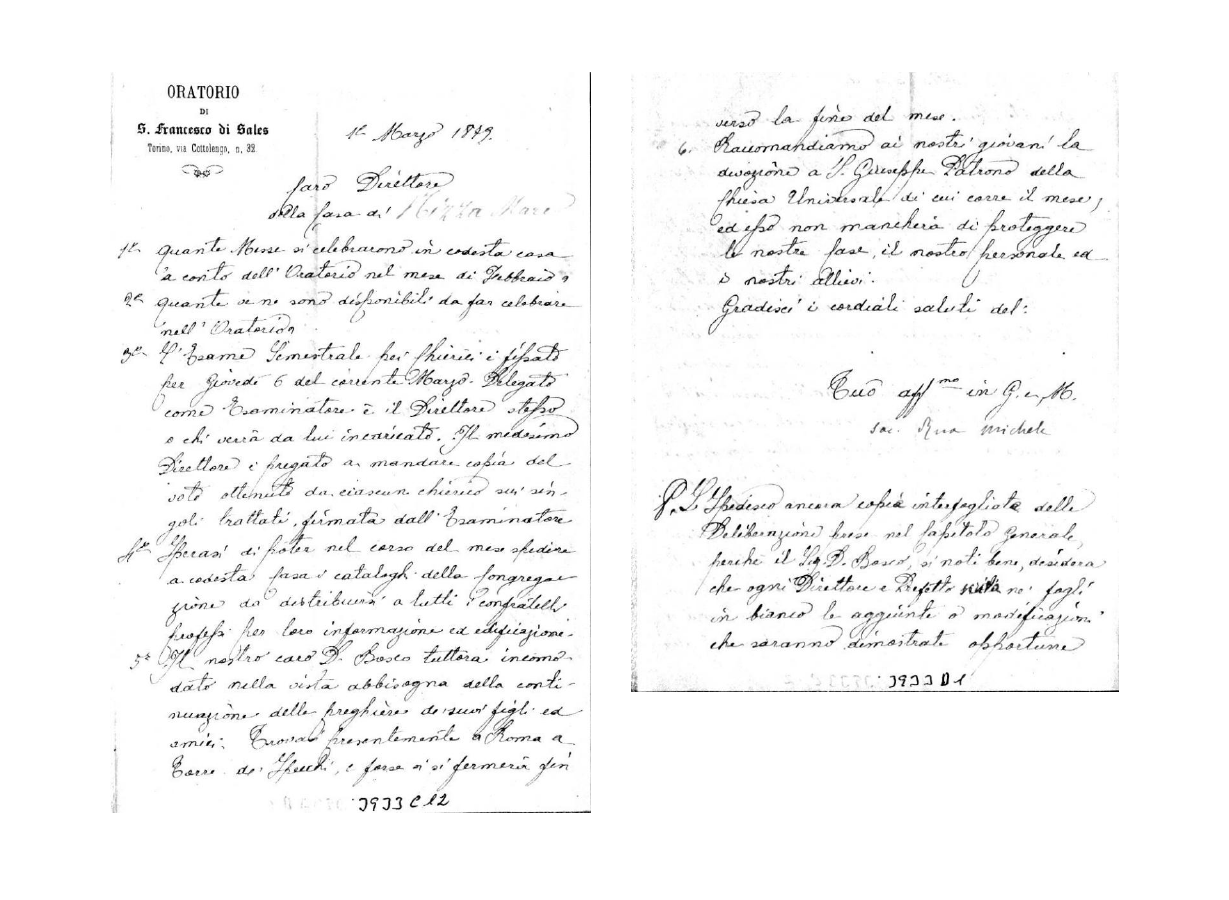 ORATORIO
DI
S. Francesco di Sales
Torino, via Cottolengo, n. 32.
1º Marzo 1879.
Caro Direttore
della Casa di Nizza Mare
1º Quante Messe si celebrarono in codesta casa
a conto dell' Oratorio nel mese di Febbraio?
2º Quante ve ne sono disponibili da far celebrare
nell' Oratorio?
3º L'Esame Semestrale pei Chierici è fissato
per Giovedì 6 del corrente Marzo. Delegato
come Esaminatore è il Direttore stesso
o chi verrà da lui incaricato. Il medesimo
Direttore è pregato a mandare copia del
voto ottenuto da ciascun chierico sui sin-
goli trattati, firmata dall' Esaminatore
4º Sperasi di poter nel corso del mese spedire
a codesta Casa i cataloghi della Congrega-
zione da distribuirsi a tutti i confratelli
professi per loro informazione ed edificazione.
5º Il nostro caro D. Bosco tuttora incomo-
dato nella vista abbisogna della conti-
nuazione delle preghiere de' suoi figli ed
amici. Trovasi presentemente a Roma a
Torre de' Specchi, e forse vi si fermerà fin
3933 C 12
verso la fine del mese.
6. Raccomandiamo ai nostri giovani la
divozione a S. Giuseppe Patrono della
Chiesa Universale di cui corre il mese,
ed esso non mancherà di proteggere
le nostre Case, il nostro personale ed
i nostri allievi.
Gradisci i cordiali saluti del:
Tuo aff.mo in G. e M.
Sac. Rua Michele
P.S. Spedisco ancora copia interfogliata delle
Deliberazioni prese nel Capitolo Generale,
perchè il Sig. D. Bosco, si noti bene, desidera
che ogni Direttore e Prefetto noti ne' fogli
in bianco le aggiunte o modificazioni
che saranno dimostrate opportune
3933 D 1